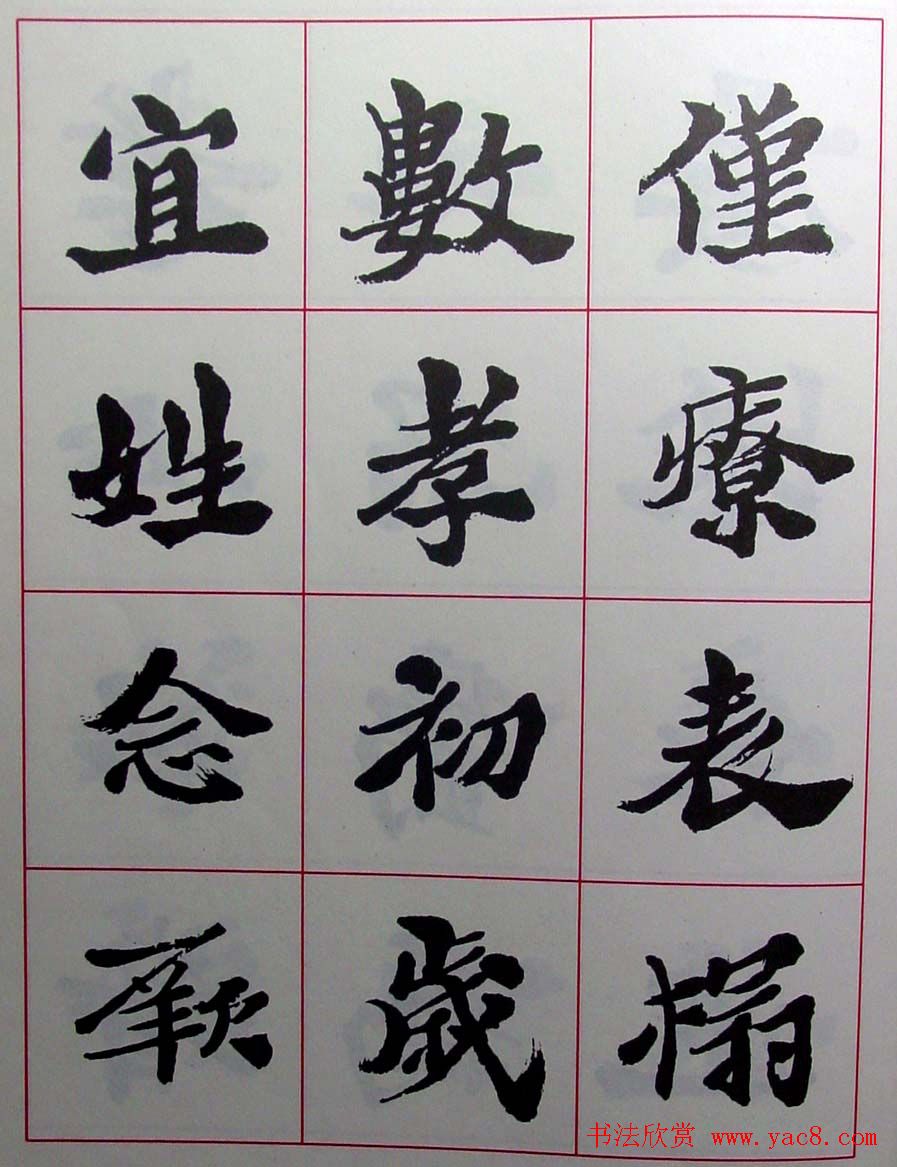 僅療表榻
數孝初歲
宜姓念厥
书法欣赏 www.yac8.com